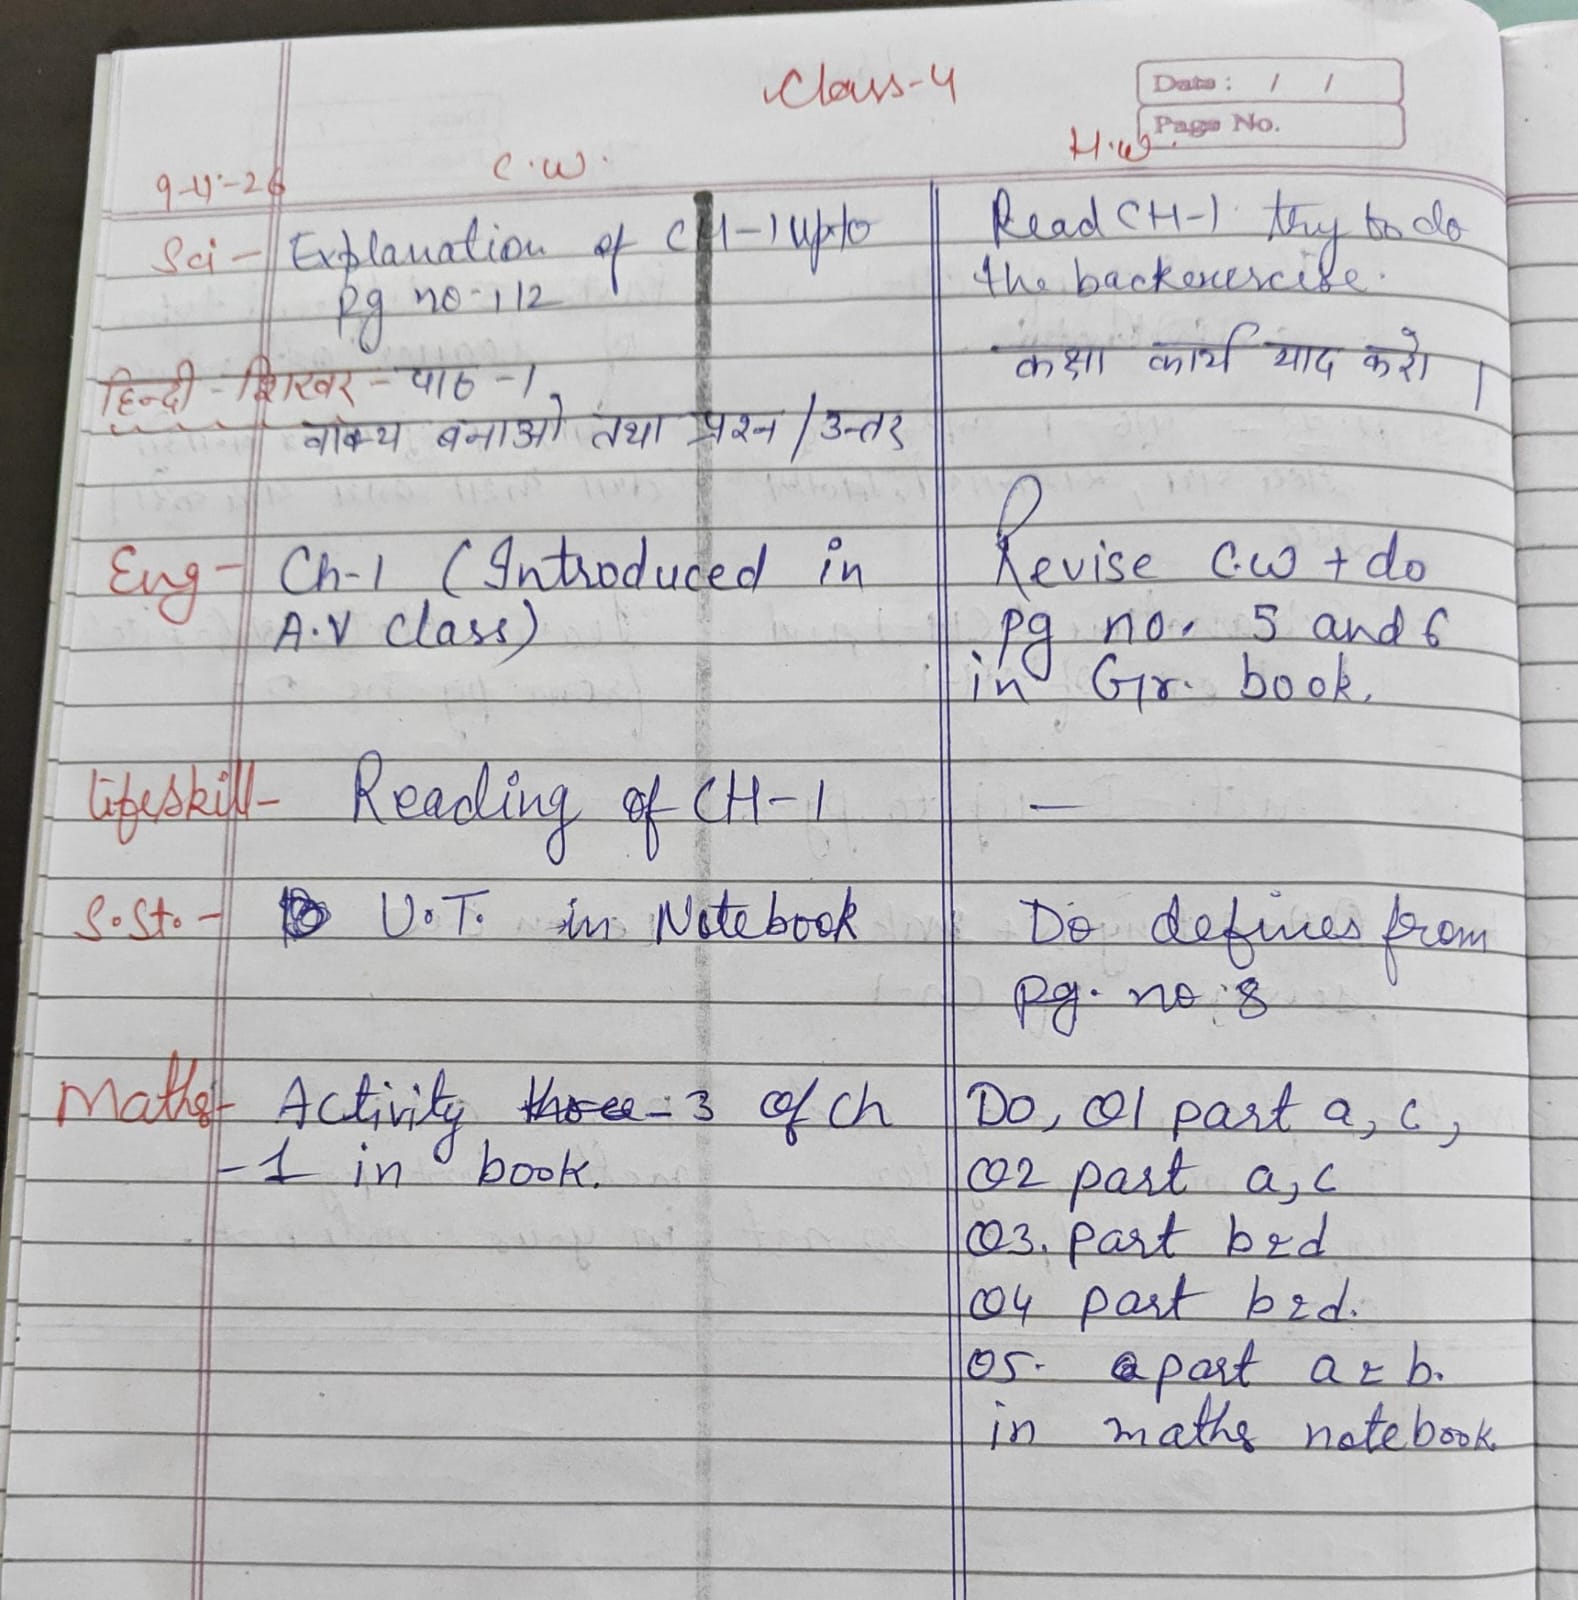 Class-4
Date: / /
Page No.
9-4-26 C.W. H.W.
Sci - Explanation of CH-1 upto
pg no-112
Read CH-1. try to do
the backexercise.
हिन्दी - शिखर - पाठ -1
वाक्य बनाओ तथा प्रश्न/उत्तर
कक्षा कार्य याद करो।
Eng - Ch-1 (Introduced in
A.V class)
Revise C.W + do
pg no. 5 and 6
in Gr. book.
lifeskill - Reading of CH-1
—
S.St. - U.T. in Notebook
Do defines from
pg. no. 8
Maths - Activity three - 3 of ch
-1 in book.
Do, Q1 part a, c,
Q2 part a, c
Q3. part b & d
Q4 part b & d.
Q5. part a & b.
in maths notebook.